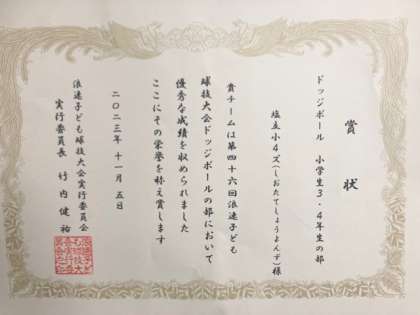 賞状
ドッジボール 小学生3・4年生の部
塩立小4ズ(しおたてしょうよんず)様
貴チームは第四十六回浪速子ども
球技大会ドッジボールの部において
優秀な成績を収められました
ここにその栄誉を称え賞します
二〇二三年 十一月 五日
浪速子ども球技大会実行委員会
実行委員長 竹内健祐